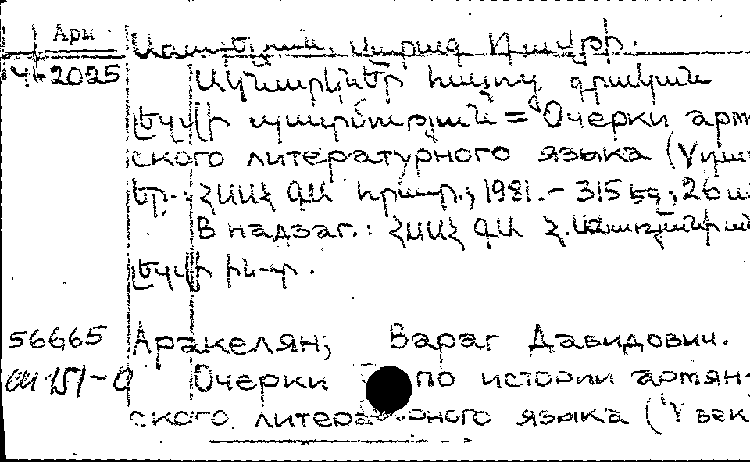 Арм
4-2025
Ակնարկներ հայոց գրական
լեզվի պատմության = Очерки армян
ского литературного языка (V
Եր.: ՀՍՍՀ ԳԱ հրատ., 1981.- 315 էջ; 26 սմ
В надзаг.: ՀՍՍՀ ԳԱ Հ.
լեզվի ին-տ.
56665 Аракелян, Вараг Давидович.
Очерки по истории армян-
ского литературного языка (V век